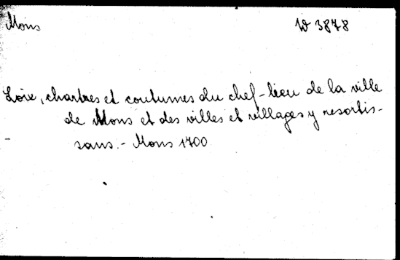 Mons W 3878
Loix, chartres et coutumes du chef-lieu de la ville
de Mons et des villes et villages y resortis-
sans.- Mons 1700